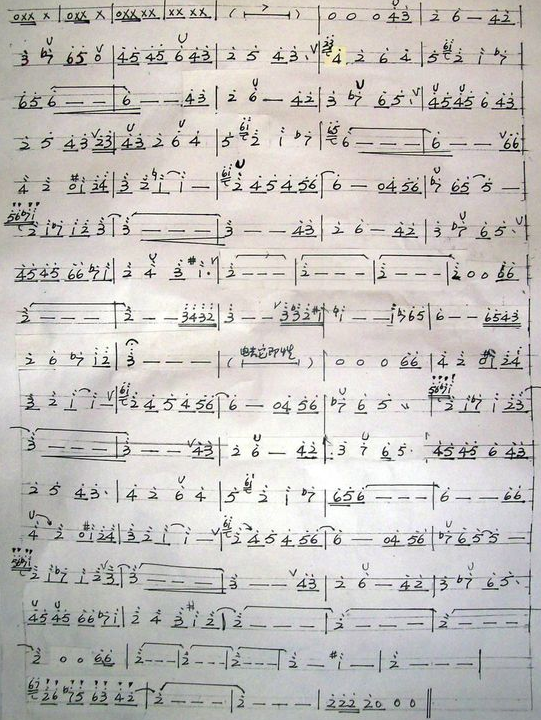 0XX X | 0XX X | 0XX XX | XX XX | ( > ) | 0 0 0 43 | 2 6 — 42 |
3 b7 65 0 | 45 45 6 43 | 2 5 43· | 4 2 6 4 | 5 2 1 b7 |
656 — — — | 6 — — 43 | 2 6 — 42 | 3 b7 65· | 45 45 6 43 |
2 5 43 23 | 43 2 6 4 | 5 2 1 b7 | 6 — — — | 6 — — 66 |
4 2 #01 24 | 3 2 1 1 — | 2 45 45 456 | 6 — 04 56 | b7 65 5 — |
2 1b7 12 3 | 3 — — — | 3 — — 43 | 2 6 — 42 | 3 b7 6 5· |
45 45 66 b71 | 2 4 3 #1· | 2 — — — | 2 — — — | 2 — — — | 2 0 0 66 |
2 — — — | 2 — — 3432 | 3 — — 332#1 | 1 — — 1b765 | 6 — — 6543 |
2 6 b7 12 | 3 — — — | ( ) | 0 0 0 66 | 4 2 #01 24 |
3 2 1 1 — | 2 45 45 456 | 6 — 04 56 | b7 6 5 | 2 1b7 1 23 |
3 — — — | 3 — — 43 | 2 6 — 42 | 3 7 65· | 45 45 6 43 |
2 5 43· | 4 2 6 4 | 5 2 1 b7 | 656 — — — | 6 — — 66 |
4 2 #01 24 | 3 2 1 1 — | 2 45 45 56 | 6 — 04 56 | b7 65 5 — |
2 1b7 12 3 | 3 — — — | 3 — — 43 | 2 6 — 42 | 3 b7 65· |
45 45 66 b71 | 2 4 3 #1 2 | 2 — — — | 2 — — — | 2 — — — |
2 0 0 66 | 2 — — — | 2 — — — | 2 — — — | 2 — #1 — | 2 — — — |
26 b75 63 42 | 2 — — — | 2 — — — | 222 20 0 0 ||